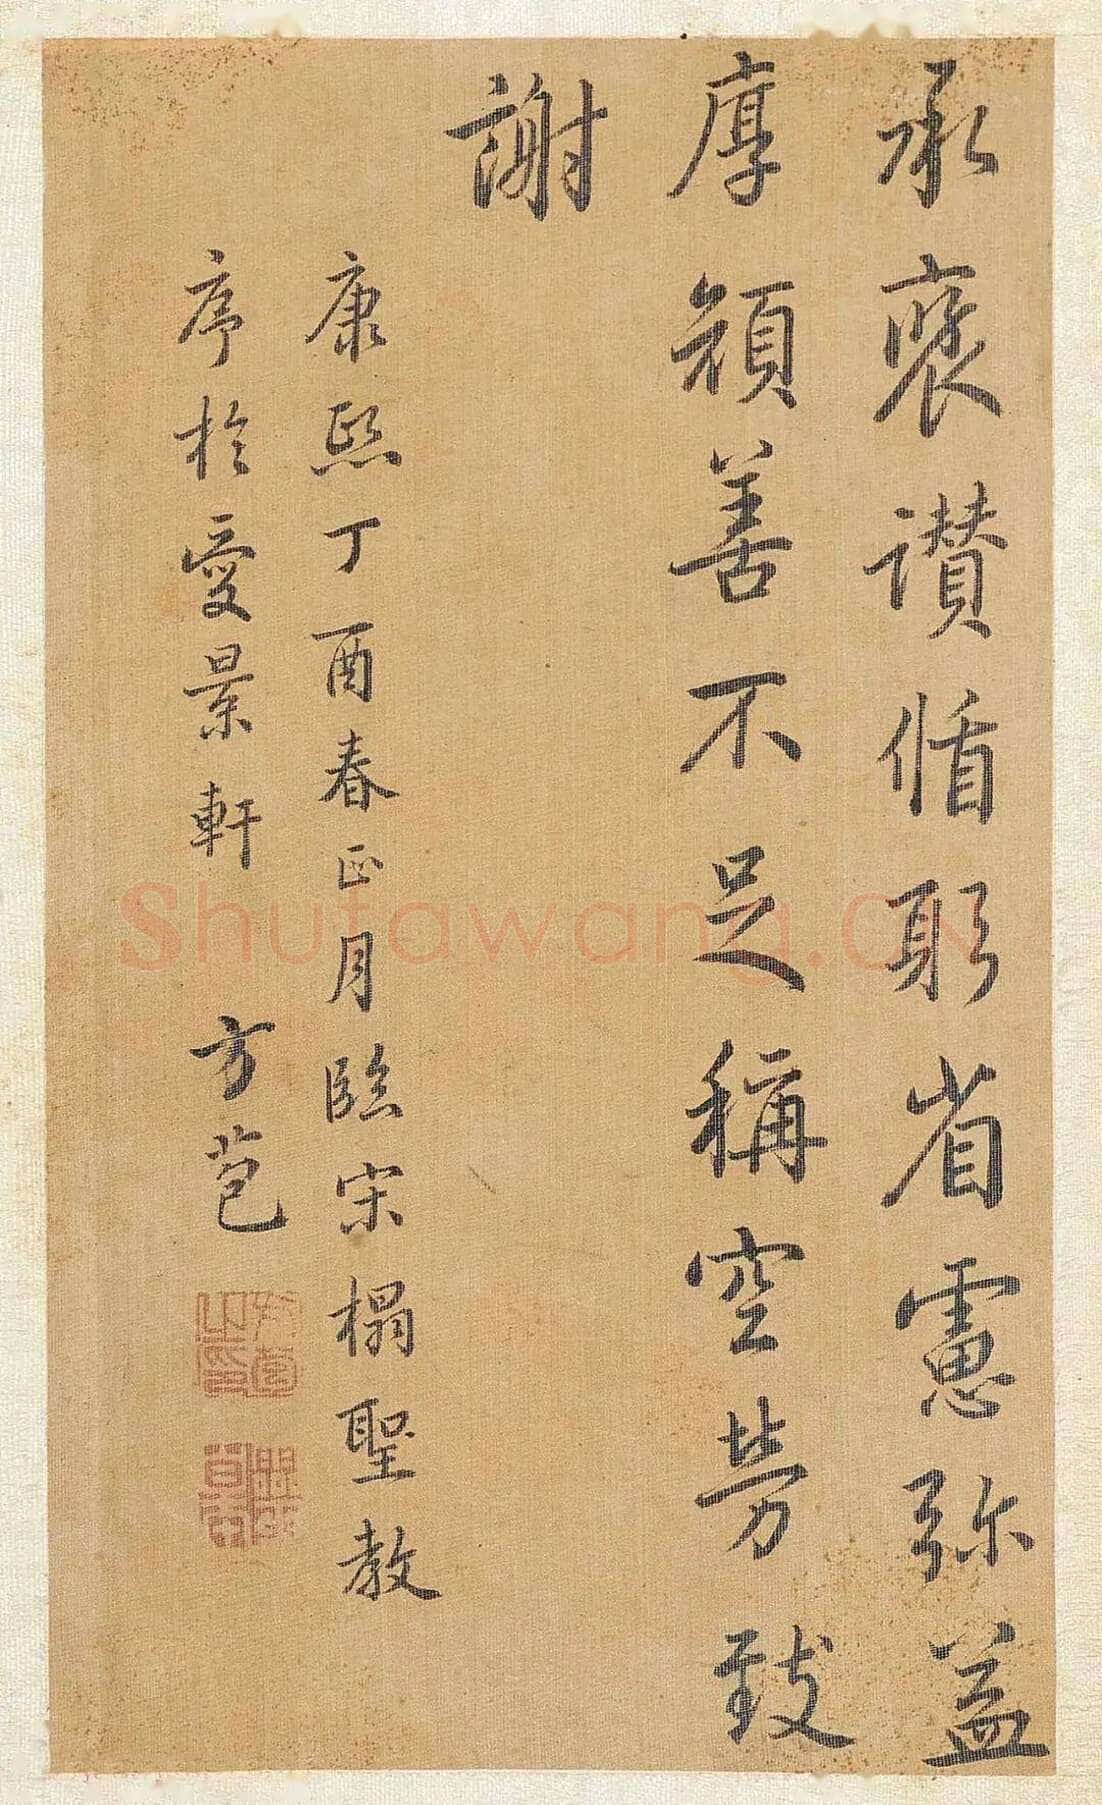 承褒讃循躬省慮弥益
厚顔善不足稱空勞致
謝
康熙丁酉春正月臨宋榻聖教
序於愛景軒 方苞
Shufawang.CN